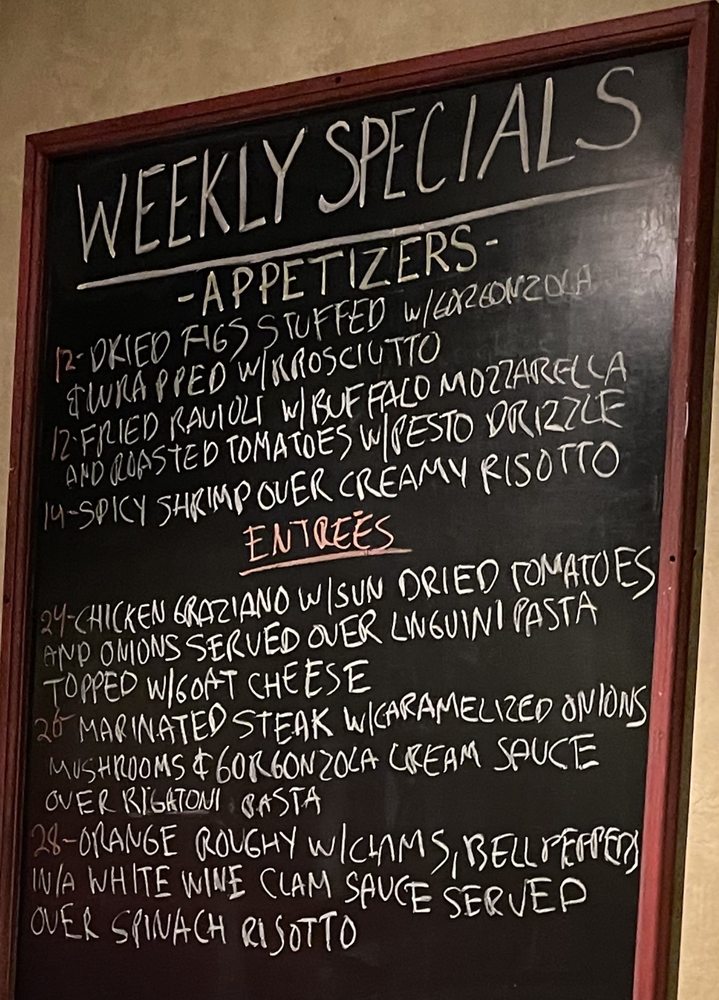 WEEKLY SPECIALS
-APPETIZERS-
12-DRIED FIGS STUFFED W/GORGONZOLA
& WRAPPED W/PROSCIUTTO
12-FRIED RAVIOLI W/BUFFALO MOZZARELLA
AND ROASTED TOMATOES W/PESTO DRIZZLE
14-SPICY SHRIMP OVER CREAMY RISOTTO
ENTREÉS
24-CHICKEN GRAZIANO W/SUN DRIED TOMATOES
AND ONIONS SERVED OVER LINGUINI PASTA
TOPPED W/GOAT CHEESE
26 MARINATED STEAK W/CARAMELIZED ONIONS
MUSHROOMS & GORGONZOLA CREAM SAUCE
OVER RIGATONI PASTA
28-ORANGE ROUGHY W/CLAMS, BELL PEPPERS
IN/A WHITE WINE CLAM SAUCE SERVED
OVER SPINACH RISOTTO